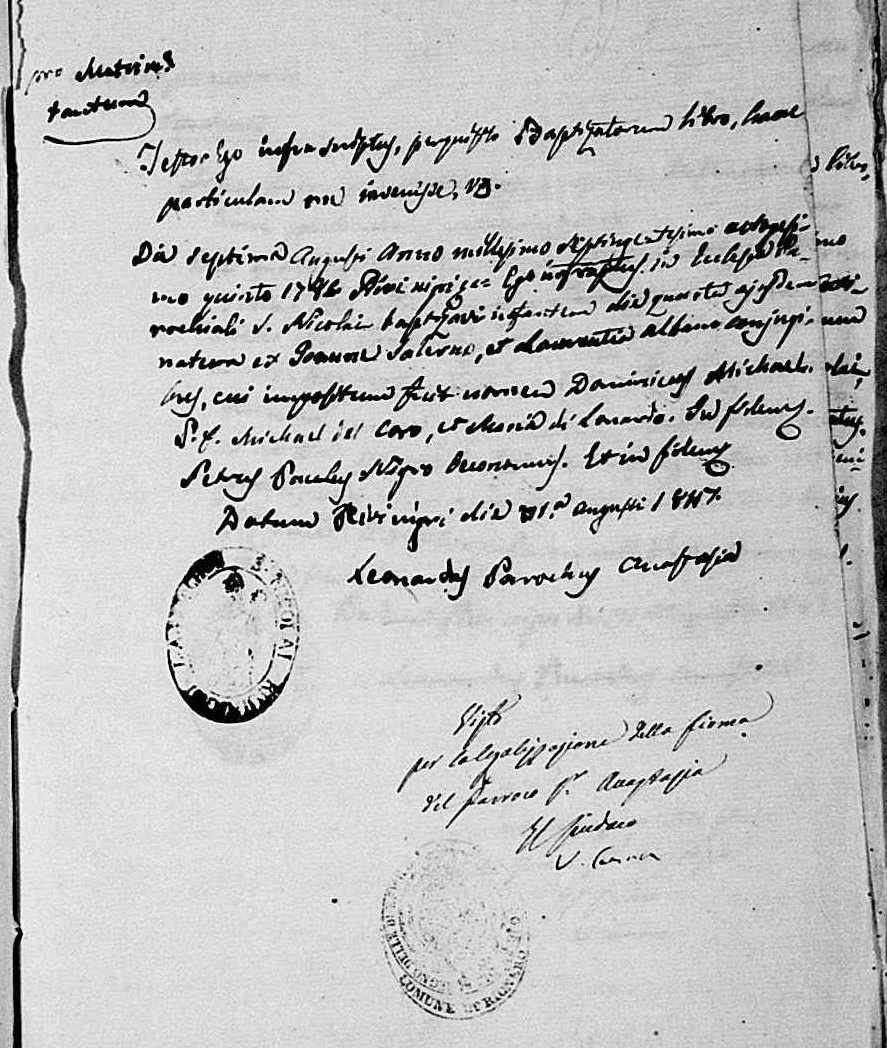 pro Matrim:
tantum
Testor Ego infra scriptus, perquisito Baptizatorum libro, hanc
particulam me invenisse, vz.
Die septima Augusti Anno millesimo septingentesimo octogesi-
mo quinto 1785 Rivi nigri = Ego infrascriptus in Ecclesia Pa-
rochiali S. Nicolai baptizavi infantem die quarta ejusdem
natum ex Joanne Salerno, et Laurentia Albano conjugi-
bus, cui impositum fuit nomen Dominicus Michael.
P. f. Michael del Caro, et Maria di Lonardo. In fidem.
Petrus Oeconomus. Et in fidem
Datum Rivi nigri die Augusti 181
Leonardus Parochus Anastasia
S. NICOLAI
Visto
per la legalizzazione della firma
del Parroco Sr. Anastasia
Il Sindaco
REGNO DELLE D
COMUNE DI RIGNARO